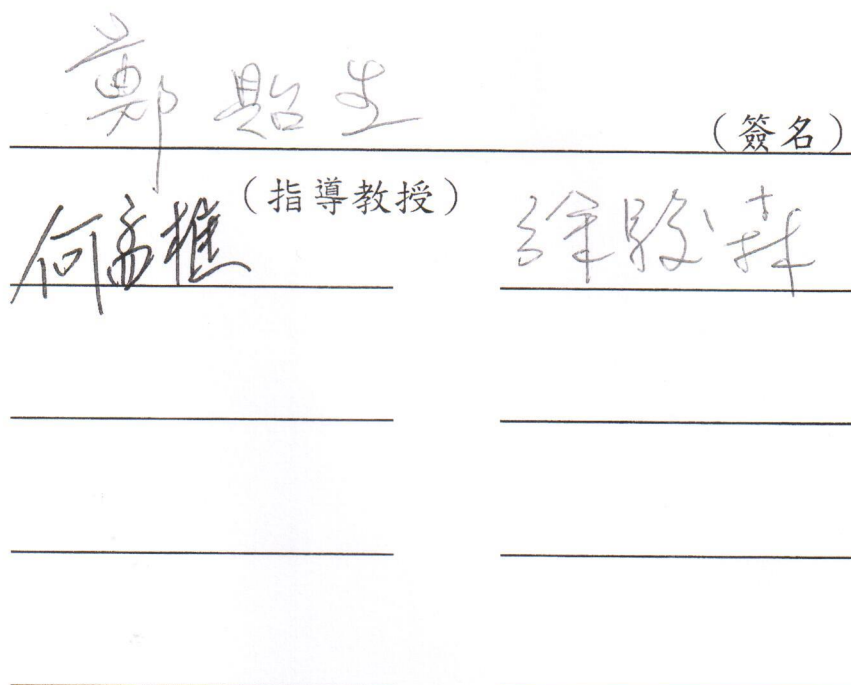 鄭貽生 (簽名)
(指導教授)
何孟樵 徐駿森